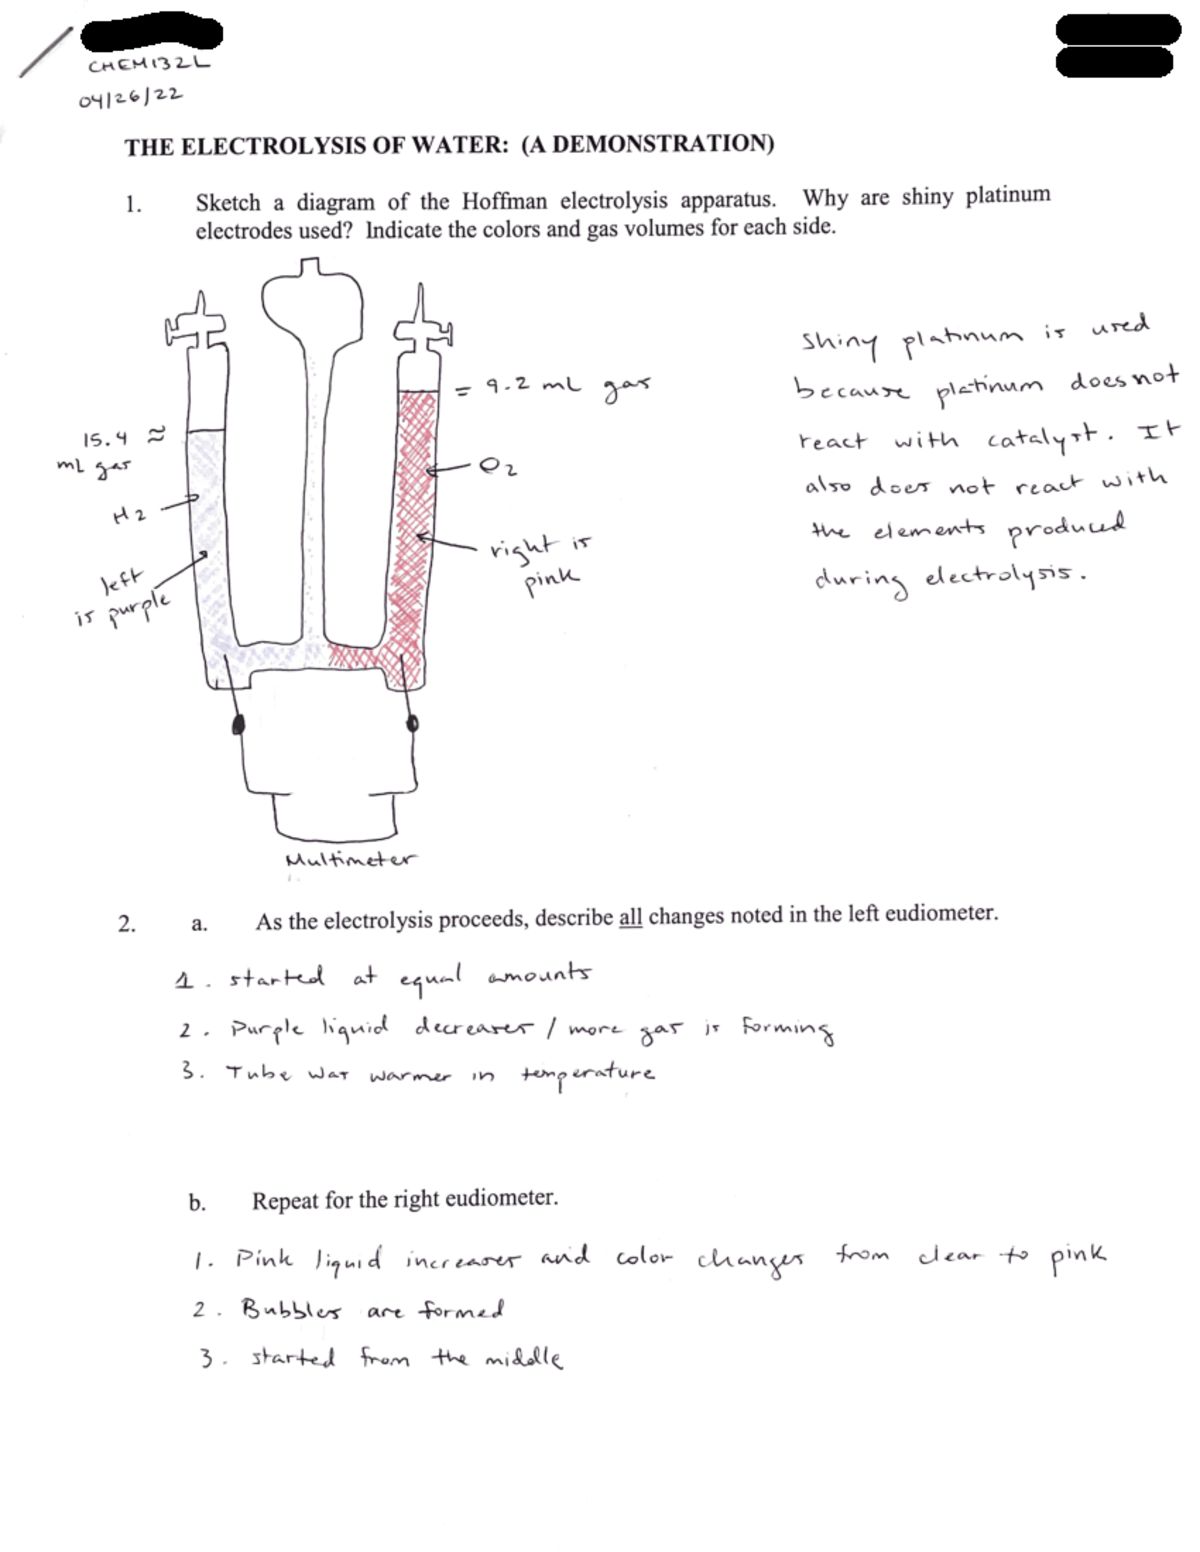 CHEM132L
04/26/22
THE ELECTROLYSIS OF WATER: (A DEMONSTRATION)
1. Sketch a diagram of the Hoffman electrolysis apparatus. Why are shiny platinum
electrodes used? Indicate the colors and gas volumes for each side.
shiny platinum is used
because platinum does not
react with catalyst. It
also does not react with
the elements produced
during electrolysis.
= 9.2 mL gas
15.4 ≈
mL gas
O2
H2
right is
pink
left
is purple
Multimeter
2. a. As the electrolysis proceeds, describe all changes noted in the left eudiometer.
1. started at equal amounts
2. Purple liquid decreases / more gas is forming
3. Tube was warmer in temperature
b. Repeat for the right eudiometer.
1. Pink liquid increases and color changes from clear to pink
2. Bubbles are formed
3. started from the middle